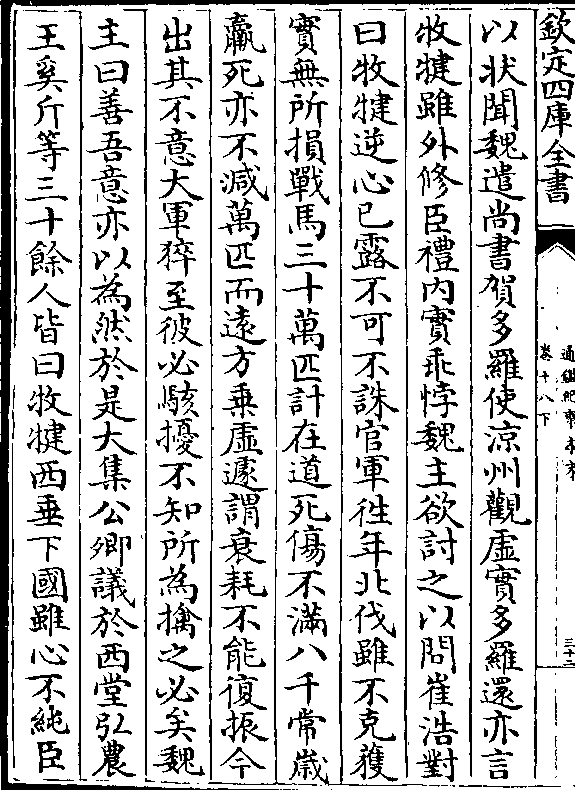 欽定四庫全書
通鑑紀事本末
卷十八下
三十二
以狀聞魏遣尚書賀多羅使涼州觀虛實多羅還亦言
牧犍雖外修臣禮内實乖悖魏主欲討之以問崔浩對
曰牧犍逆心已露不可不誅官軍徃年北伐雖不克獲
實無所損戰馬三十萬匹計在道死傷不滿八千常歳
羸死亦不減萬匹而遠方乗虛遽謂衰耗不能復振今
出其不意大軍猝至彼必駭擾不知所為擒之必矣魏
主曰善吾意亦以為然於是大集公卿議於西堂弘農
王奚斤等三十餘人皆曰牧犍西垂下國雖心不純臣